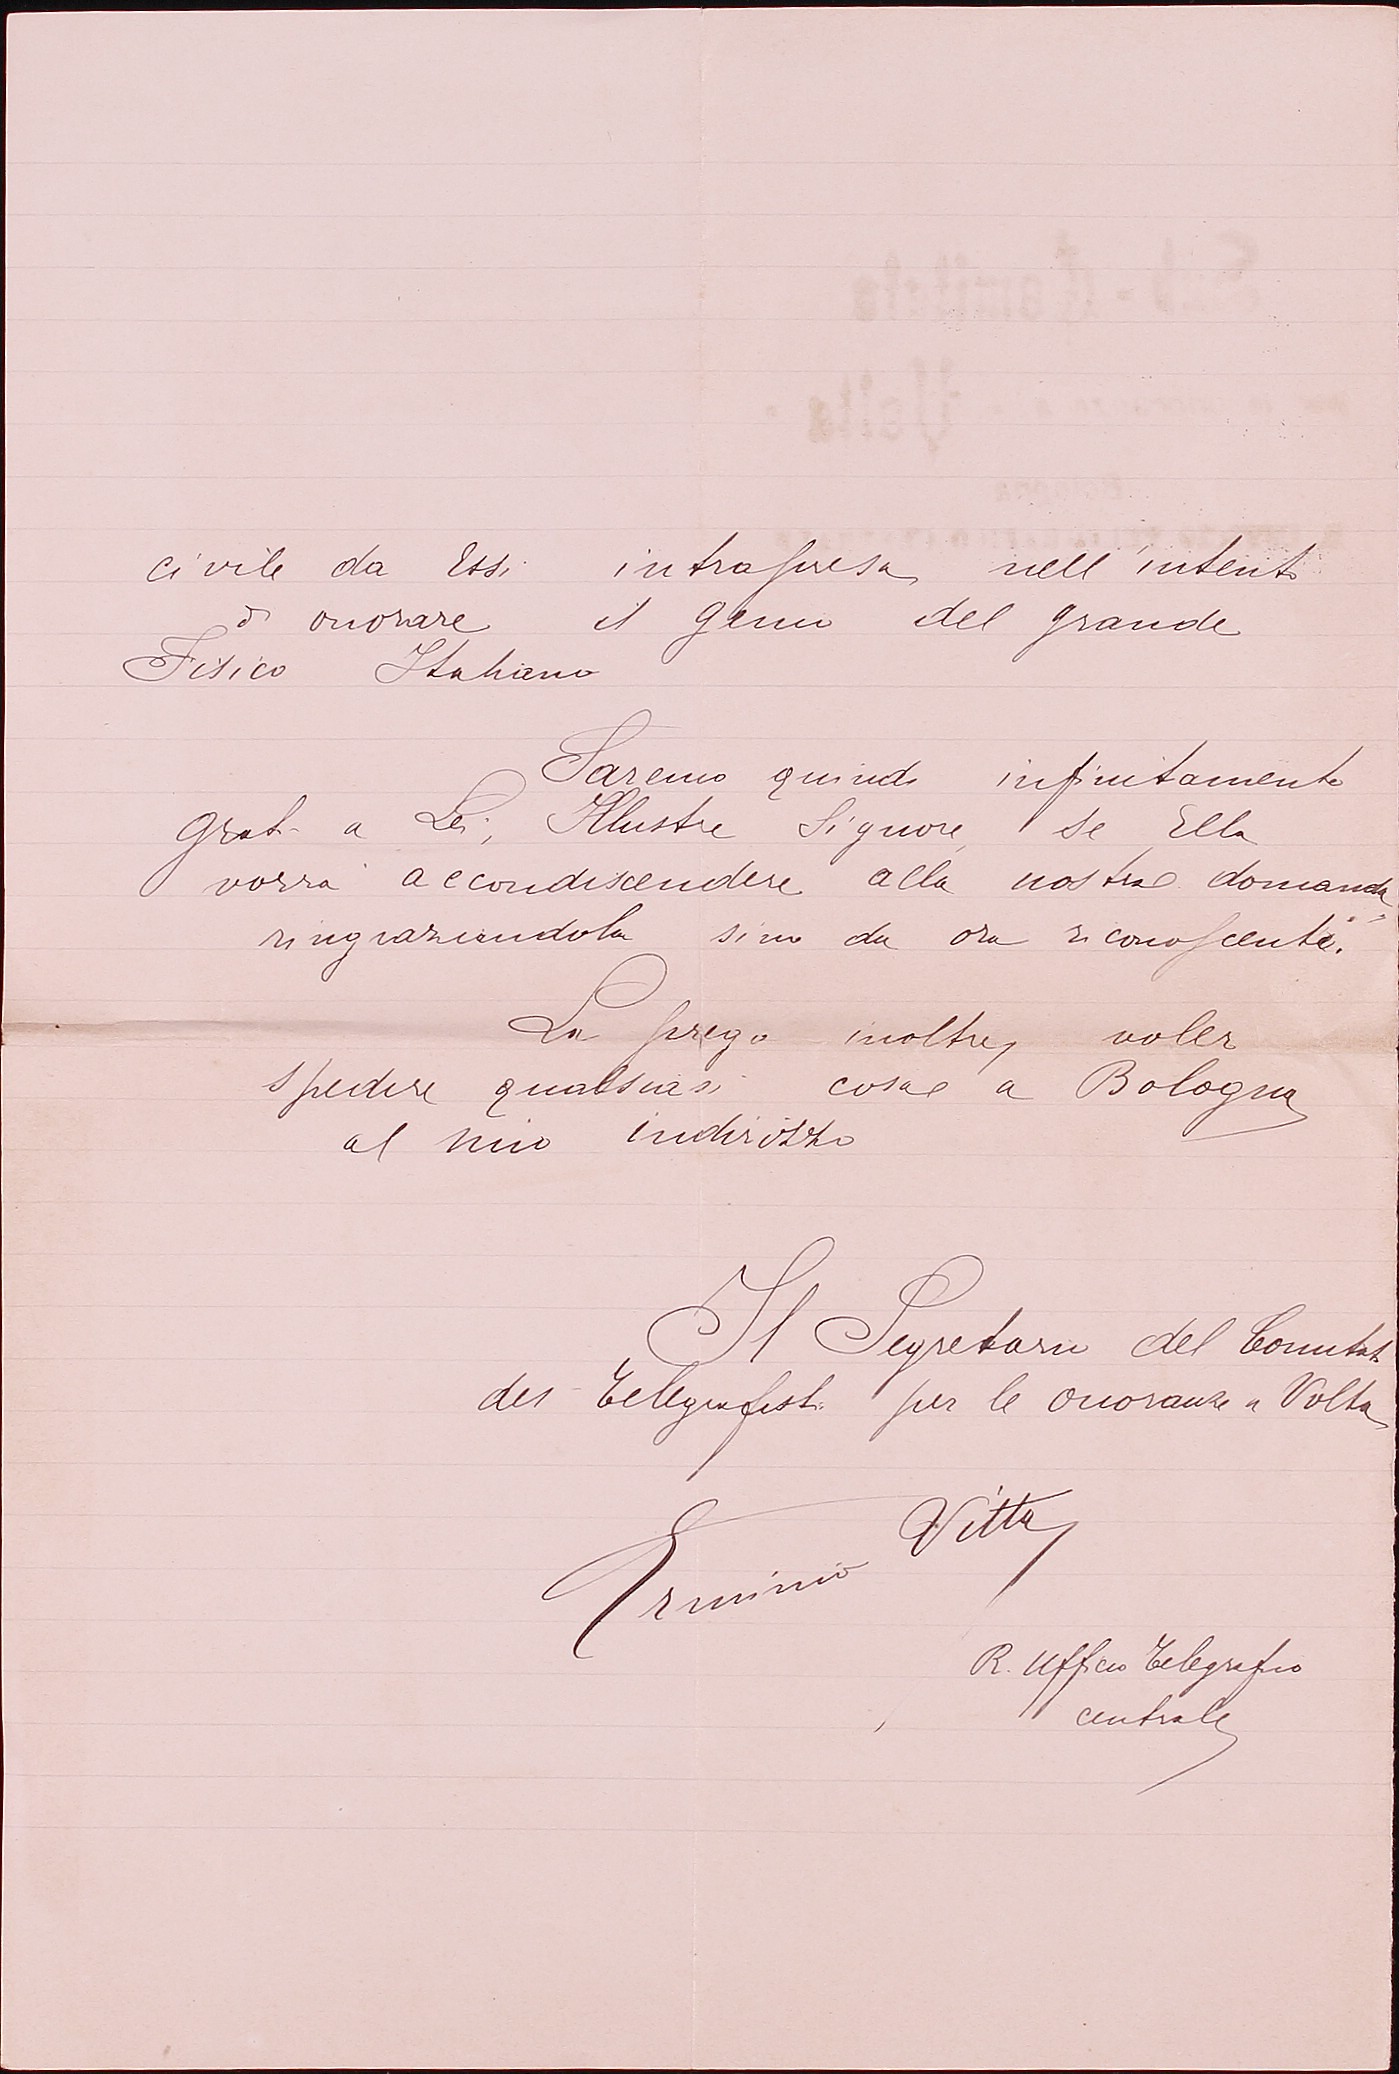 civile da Essi intrapresa nell'intento
di onorare il genio del grande
Fisico Italiano
Saremo quindi infinitamente
grati a Lei, Illustre Signore, se Ella
vorrà accondiscendere alla nostra domanda
ringraziandola sino da ora riconoscenti.
La prego inoltre, voler
spedire qualsiasi cosa a Bologna
al mio indirizzo
Il Segretario del Comitato
dei Telegrafisti per le onoranze a Volta
Erminio Vitta
R. Ufficio Telegrafico
centrale